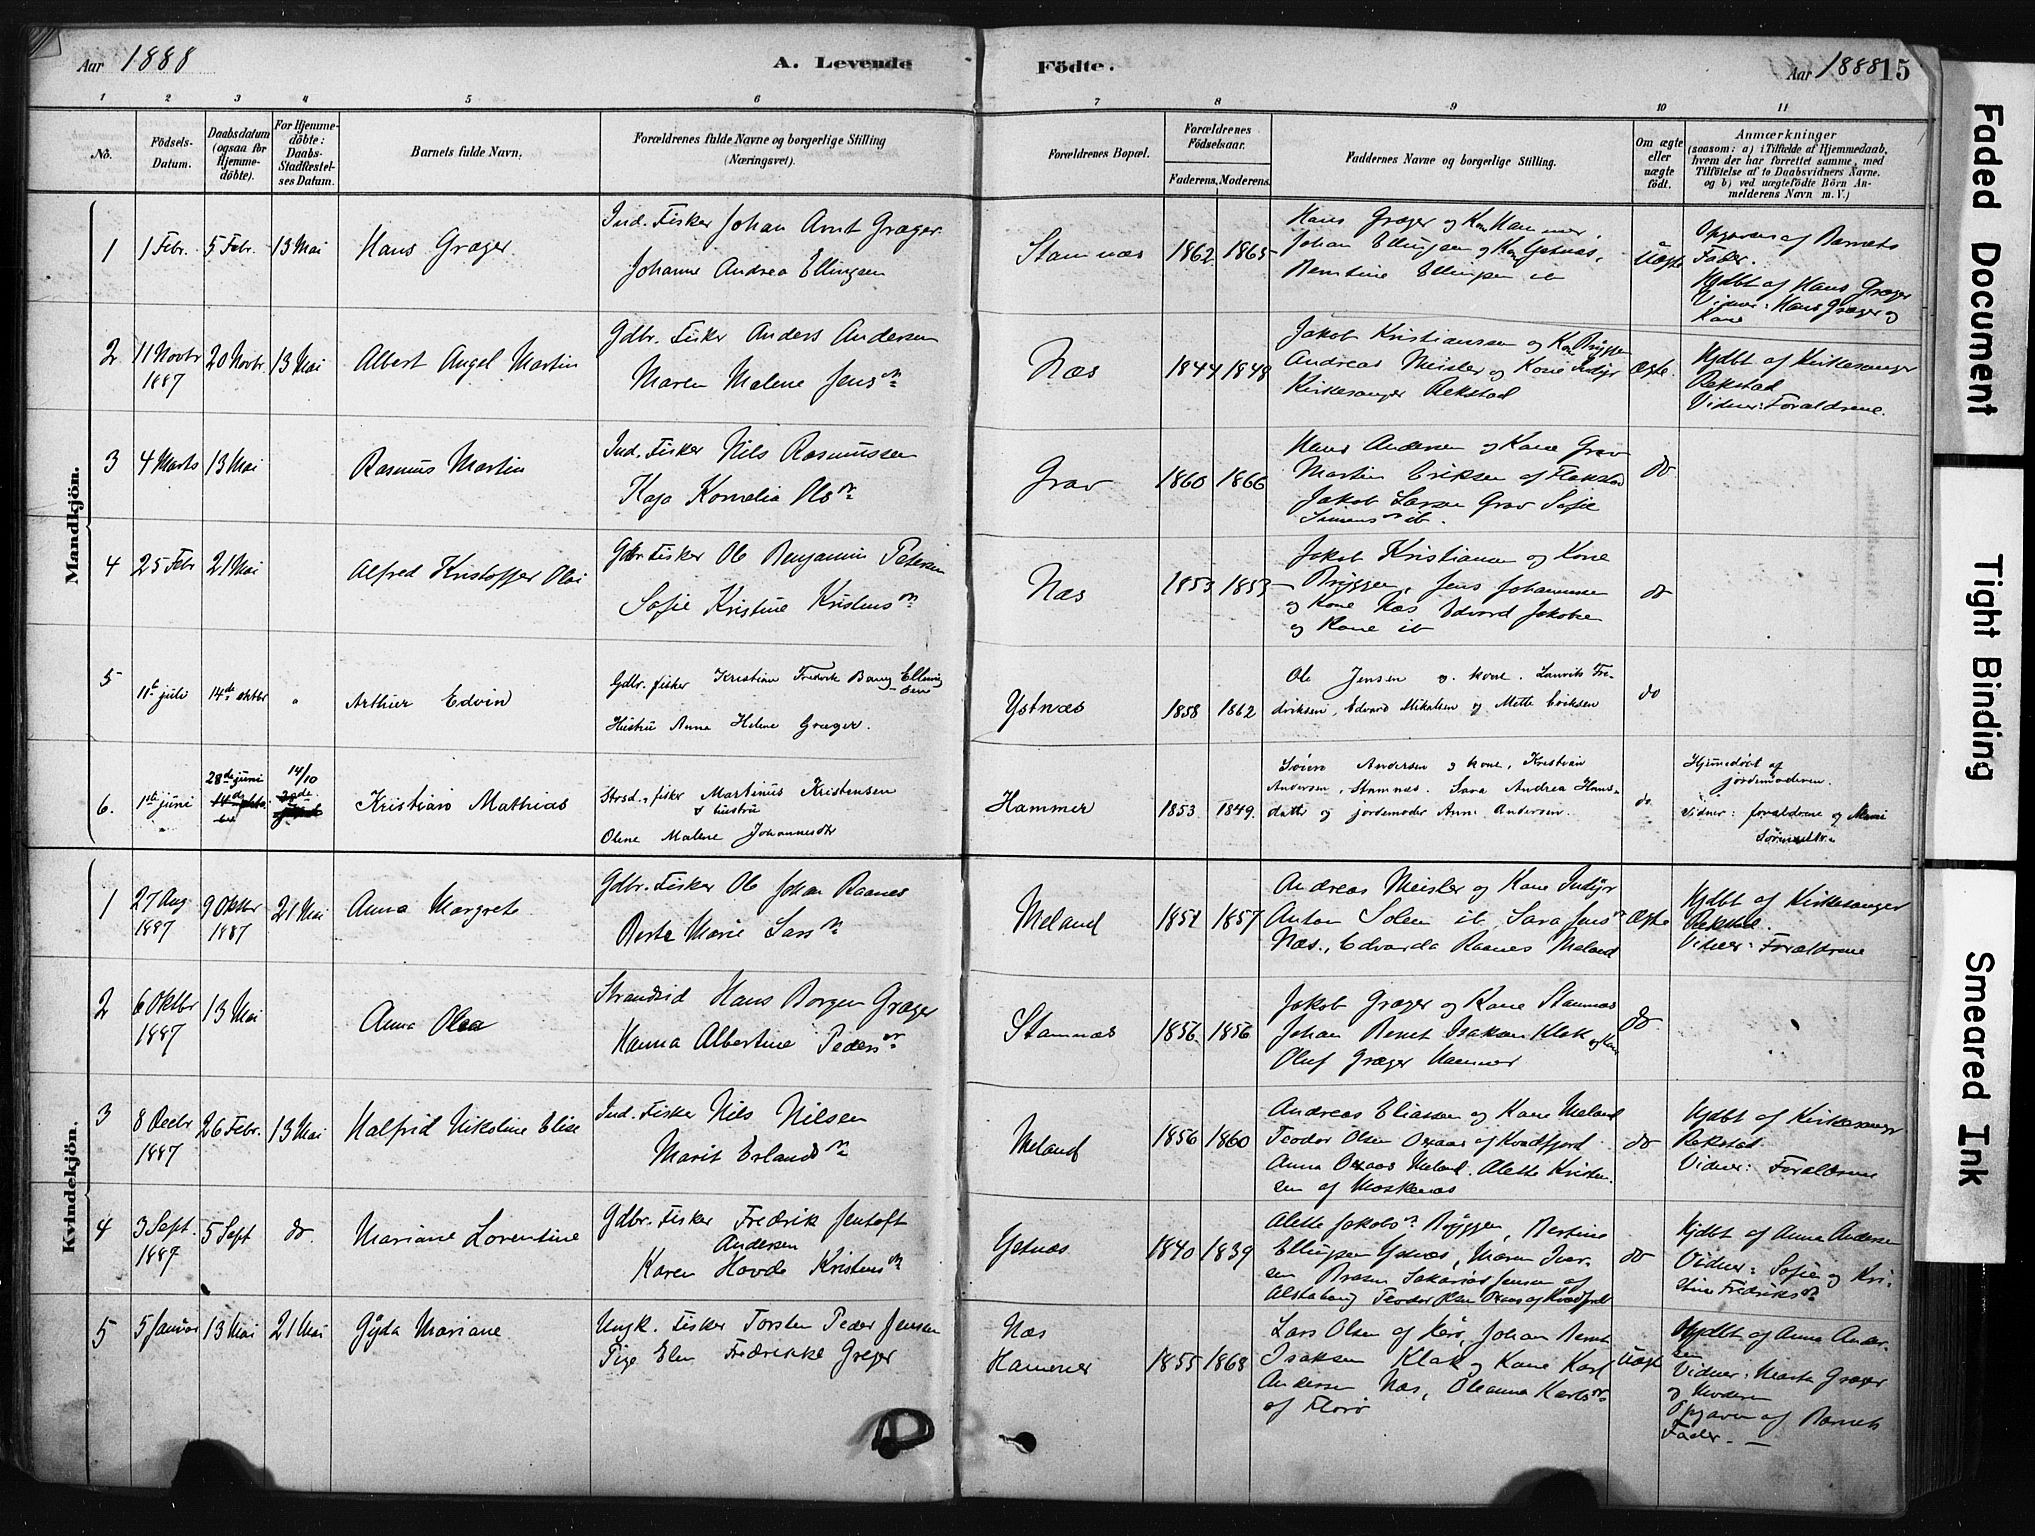 Aar 1888 A. Levende Födte. Aar 1888 15
1 2 3 4 5 6 7 8 9 10 11
No.
Födsels-
Datum.
Daabsdatum
(ogsaa for
Hjemme-
döbte).
For Hjemme-
döbte:
Daabs-
Stadfæstel-
ses Datum.
Barnets fulde Navn.
Forældrenes fulde Navne og borgerlige Stilling
(Næringsvei).
Forældrenes Bopæl.
Forældrenes
Födselsaar.
Faderens. Moderens.
Faddernes Navne og borgerlige Stilling.
Om ægte
eller
uægte
födt.
Anmærkninger
(saasom: a) i Tilfælde af Hjemmedaab,
hvem der har forrettet samme, med
Tilföielse af to Daabsvidners Navne,
og b) ved uægtefödte Börn An-
melderens Navn m. V.)
Mandkjön.
1 1 Febr. 5 Febr. 13 Mai Hans Græger
Ind. Fisker Johan Arnt Græger
Johanne Andrea Ellingsen
Stamnæs 1862 1865
Hans Græger og Kone Hammer,
Johan Ellingsen og Kone Ystnæs,
Berntine Ellingsen ib
Uægte
Opgaven af Barnets
Fader.
Hjdbt af Hans Græger
Vidner: Hans Græger og
Kone
2 11 Novbr 1887 20 Novbr. 13 Mai Albert Angel Martin
Gdbr. Fisker Anders Andersen
Maren Malene Jensdr
Næs 1844 1848
Jakob Kristiansen og Kone Bryggen
Andreas Meisler og Kone Indyr
Kirkesanger Rekstad
Ægte.
Hjdbt af Kirkesanger
Rekstad
Vidner: Forældrene.
3 4 Marts 13 Mai Rasmus Martin
Ind. Fisker Nils Rasmussen
Kaja Kornelia Olsdr
Grav 1860 1866
Hans Andersen og Kone Grav
Martin Eriksen af Flakstad
Jakob Larsen Grav Sofie
Simensdr ib.
do
4 25 Febr 21 Mai Alfred Kristoffer Olai
Gdbr. Fisker Ole Benjamin Petersen
Sofie Kristine Kristensdr
Næs 1853 1853
Jakob Kristiansen og Kone
Bryggen, Jens Johannesen
og Kone Næs Edvard Jakobsen
og Kone ib
do
5 11te juli 14de oktbr " Arthur Edvin
Gdbr. fisker Kristian Fredrik Bang Elling-
sen
Hustru Anna Helene Græger.
Ystnæs 1858 1862
Ole Jensen og kone. Laurits Fre-
driksen, Edvard Mikalsen og Mette Eriksen
do
6. 1ste juni 28de juni 14/10 Kristian Mathias
Strsd. fisker Martinus Kristensen
& hustru
Olene Malene Johannesdtr
Hammer 1853 1849.
Sören Andersen & kone, Kristian
Andersen, Stamnæs. Sara Andrea Hans-
datter og jordemoder Anne Andersen.
do
Hjemmedöbt af
jordemoderen.
Vidner: forældrene og Marie
Sörensdtr.
Kvindekjön.
1 27 Aug 1887 9 Oktbr 1887 21 Mai Anna Margrete
Gdbr. Fisker Ole Johan Raanes
Berte Marie Larsdr
Meland 1851 1857
Andreas Meisler og Kone Indyr
Anton Solem ib, Sara Jensdr
Næs, Edvarda Raanes Meland
Ægte
Hjdbt af Kirkesanger
Rekstad.
Vidner: Forældrene
2 6 Oktbr 1887 13 Mai Anna Olea
Strandsid Hans Borgen Græger
Hanna Albertine Pedersdr
Stamnæs 1856 1856
Jakob Græger og Kone Stamnæs
Johan Bernt Isaksen Klak og Kone
Oluf Græger Hammer
do
3 8 Decbr 1887 26 Febr. 13 Mai Halfrid Nikoline Elise
Ind. Fisker Nils Nilsen
Marit Erlandsdr
Meland 1856 1860
Andreas Eliassen og Kone Meland
Teodor Olsen Oxaas af Kvædfjord
Anna Oxaas Meland. Alette Kristen-
sen af Moskenæs
do
Hjdbt af Kirkesanger
Rekstad
Vidner: Forældrene
4 3 Sept. 1887 5 Sept do. Mariane Lorentine
Gdbr. Fisker Fredrik Jentoft
Andersen
Karen Hovde Kristensdr
Ystnæs 1840 1839
Alette Jakobsdr Bryggen, Bertine
Ellingsen Ystnæs, Maren Ivar-
sen Brasen Sakarias Jensen af
Alstahaug Teodor Olsen Oxaas af Kvædfjord
do
Hjdbt af Anna Andersen
Vidner: Sofie og Kri-
stine Fredriksdr
5 5 Januar 13 Mai 21 Mai Gyda Mariane
Ungk. Fisker Torsten Peder Jensen
Pige Elen Fredrikke Greger
Næs
Hammer 1855 1868
Lars Olsen af Herö, Johan Bernt
Isaksen Klak og Kone Karl
Andersen Næs, Oleanna Karlsdr
af Florö
Uægte
Hjdbt af Anna Ander-
sen
Vidner: Marta Græger
og Moderen
Opgaven af Barnets
Fader. —
Faded Document
Tight Binding
Smeared Ink